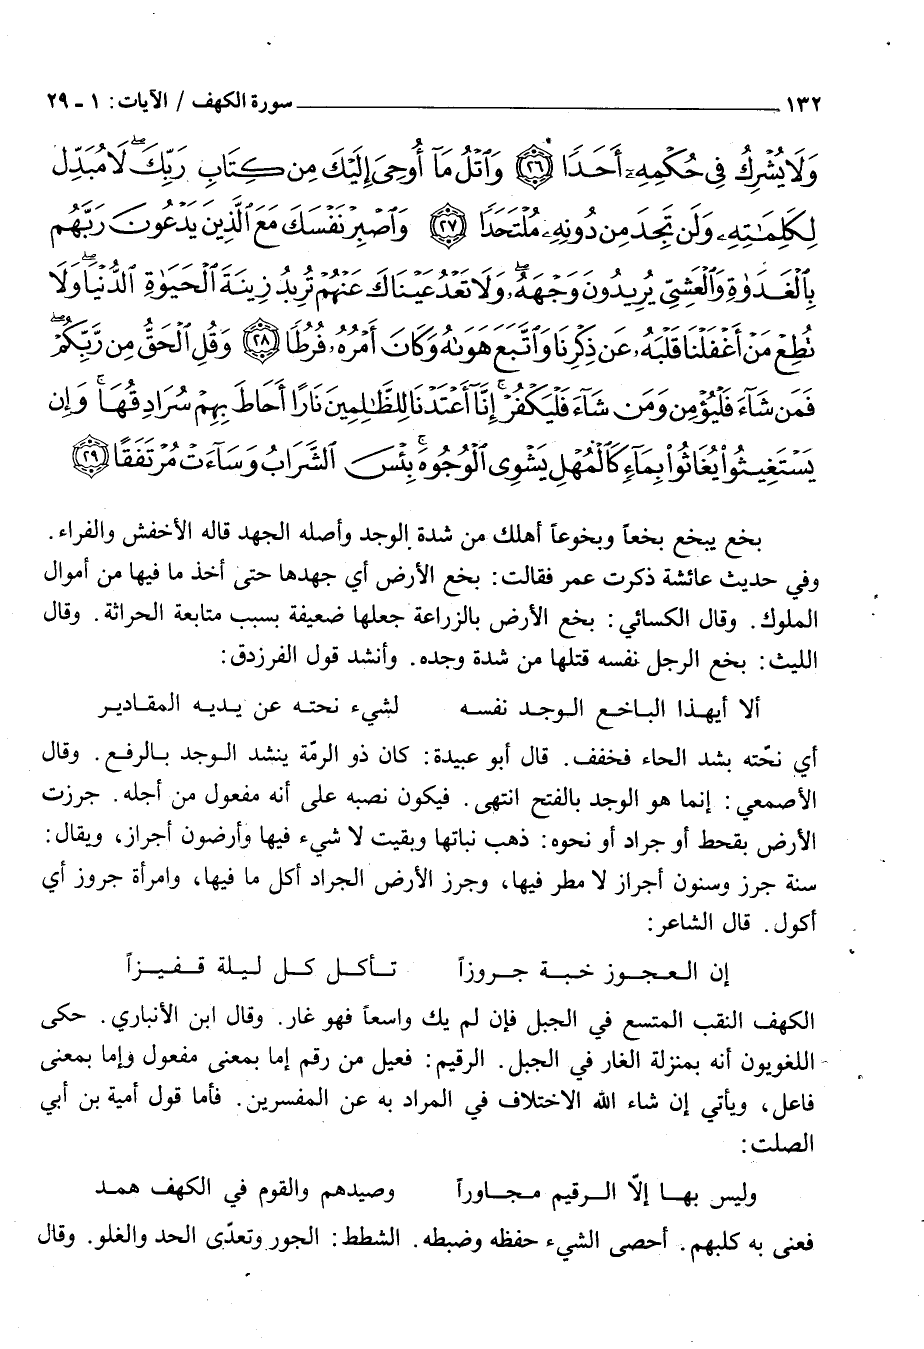 ١٣٢ سورة الكهف / الآيات: ١ - ٢٩
وَلَا يُشْرِكُ فِي حُكْمِهِۦٓ أَحَدًا ﴿٢٦﴾ وَٱتْلُ مَآ أُوحِىَ إِلَيْكَ مِن كِتَابِ رَبِّكَ ۖ لَا مُبَدِّلَ
لِكَلِمَٰتِهِۦ وَلَن تَجِدَ مِن دُونِهِۦ مُلْتَحَدًا ﴿٢٧﴾ وَٱصْبِرْ نَفْسَكَ مَعَ ٱلَّذِينَ يَدْعُونَ رَبَّهُم
بِٱلْغَدَوٰةِ وَٱلْعَشِىِّ يُرِيدُونَ وَجْهَهُۥ ۖ وَلَا تَعْدُ عَيْنَاكَ عَنْهُمْ تُرِيدُ زِينَةَ ٱلْحَيَوٰةِ ٱلدُّنْيَا ۖ وَلَا
نُطِعْ مَنْ أَغْفَلْنَا قَلْبَهُۥ عَن ذِكْرِنَا وَٱتَّبَعَ هَوَىٰهُ وَكَانَ أَمْرُهُۥ فُرُطًا ﴿٢٨﴾ وَقُلِ ٱلْحَقُّ مِن رَّبِّكُمْ ۖ
فَمَن شَآءَ فَلْيُؤْمِن وَمَن شَآءَ فَلْيَكْفُرْ ۚ إِنَّآ أَعْتَدْنَا لِلظَّٰلِمِينَ نَارًا أَحَاطَ بِهِمْ سُرَادِقُهَا ۚ وَإِن
يَسْتَغِيثُوا۟ يُغَاثُوا۟ بِمَآءٍ كَٱلْمُهْلِ يَشْوِى ٱلْوُجُوهَ ۚ بِئْسَ ٱلشَّرَابُ وَسَآءَتْ مُرْتَفَقًا ﴿٢٩﴾
بخع يبخع بخعاً وبخوعاً أهلك من شدة الوجد وأصله الجهد قاله الأخفش والفراء.
وفي حديث عائشة ذكرت عمر فقالت: بخع الأرض أي جهدها حتى أخذ ما فيها من أموال
الملوك. وقال الكسائي: بخع الأرض بالزراعة جعلها ضعيفة بسبب متابعة الحراثة. وقال
الليث: بخع الرجل نفسه قتلها من شدة وجده. وأنشد قول الفرزدق:
ألا أيهذا الباخع الوجد نفسه لشيء نحته عن يديه المقادير
أي نحّته بشد الحاء فخفف. قال أبو عبيدة: كان ذو الرمّة ينشد الوجد بالرفع. وقال
الأصمعي: إنما هو الوجد بالفتح انتهى. فيكون نصبه على أنه مفعول من أجله. جرزت
الأرض بقحط أو جراد أو نحوه: ذهب نباتها وبقيت لا شيء فيها وأرضون أجراز، ويقال:
سنة جرز وسنون أجراز لا مطر فيها، وجرز الأرض الجراد أكل ما فيها، وامرأة جروز أي
أكول. قال الشاعر:
إن العجوز خبة جروزاً تأكل كل ليلة قفيزاً
الكهف النقب المتسع في الجبل فإن لم يك واسعاً فهو غار. وقال ابن الأنباري. حكى
اللغويون أنه بمنزلة الغار في الجبل. الرقيم: فعيل من رقم إما بمعنى مفعول وإما بمعنى
فاعل، ويأتي إن شاء الله الاختلاف في المراد به عن المفسرين. فأما قول أمية بن أبي
الصلت:
وليس بها إلّا الرقيم مجاوراً وصيدهم والقوم في الكهف همد
فعنى به كلبهم. أحصى الشيء حفظه وضبطه. الشطط: الجور وتعدّى الحد والغلو. وقال